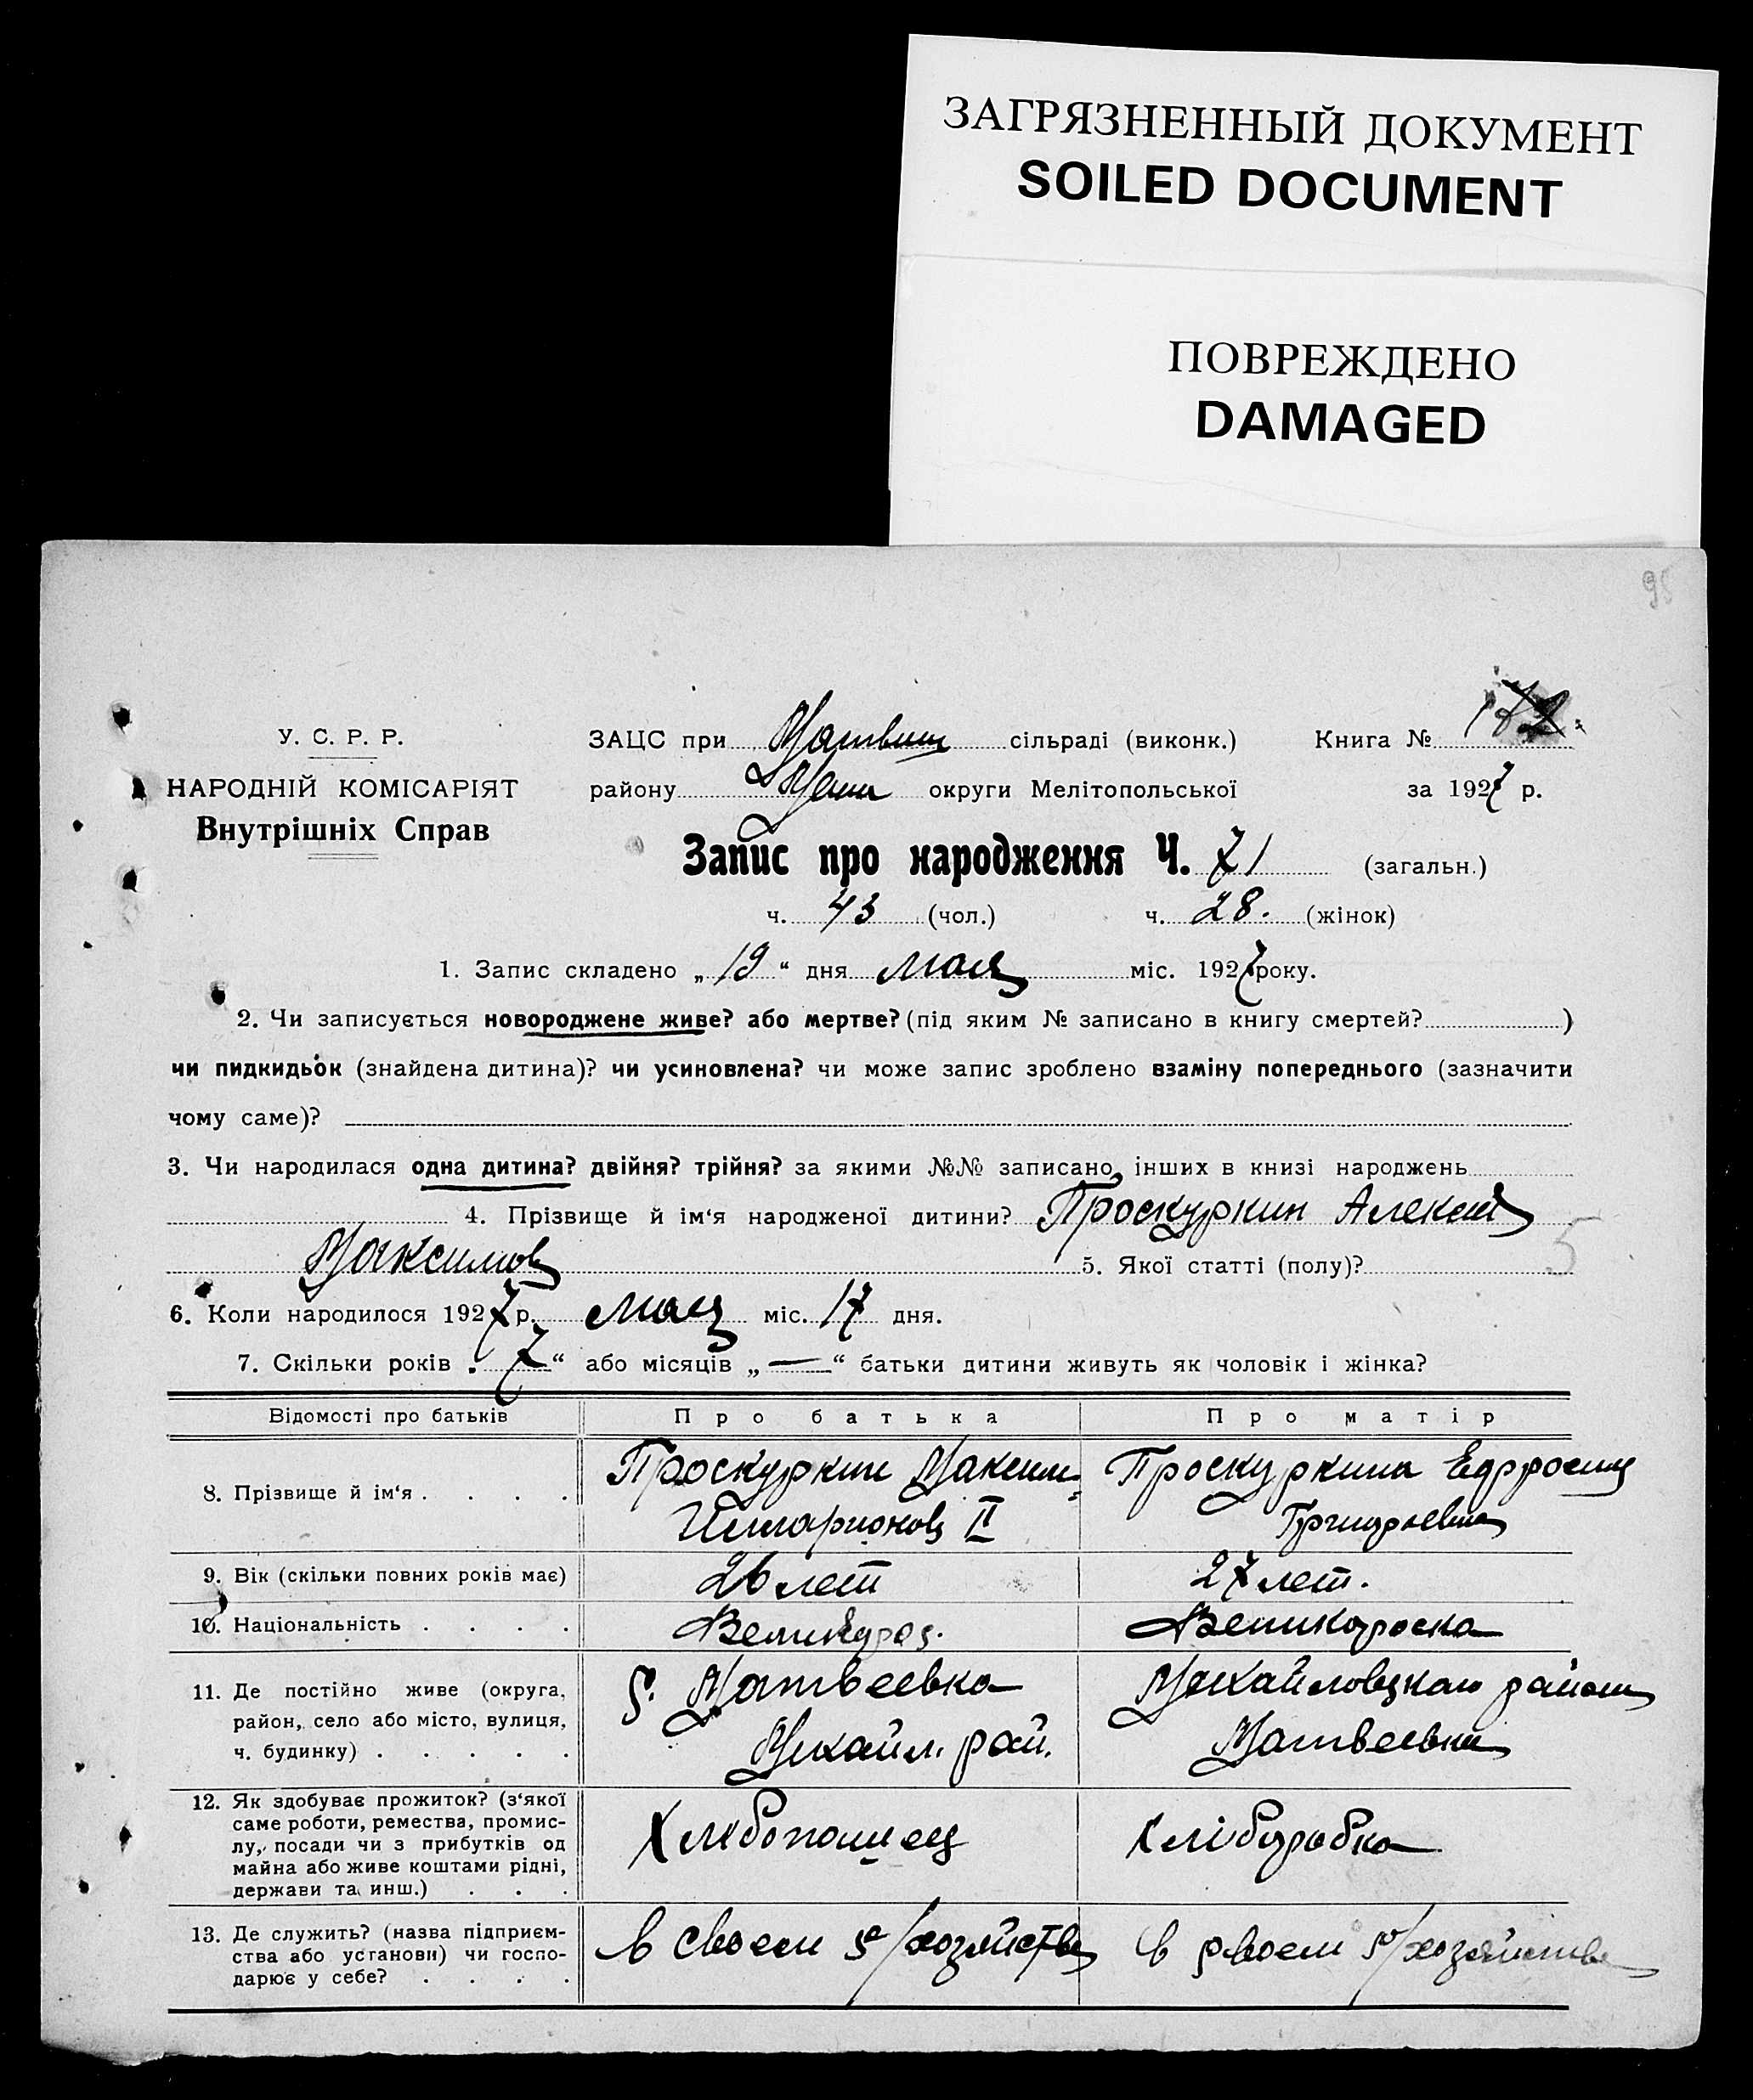 ЗАГРЯЗНЕННЫЙ ДОКУМЕНТ
SOILED DOCUMENT
ПОВРЕЖДЕНО
DAMAGED
95
У. С. Р. Р.
НАРОДНІЙ КОМІСАРІЯТ
Внутрішніх Справ
ЗАЦС при Матвеев сільраді (виконк.) Книга №
району Мих округи Мелітопольської за 1927 р.
Запис про народження Ч. 71 (загальн.)
ч. 43 (чол.) ч. 28. (жінок)
1. Запис складено „19“ дня мая міс. 1927 року.
2. Чи записується новороджене живе? або мертве? (під яким № записано в книгу смертей? )
чи пидкидьок (знайдена дитина)? чи усиновлена? чи може запис зроблено взаміну попереднього (зазначити
чому саме)?
3. Чи народилася одна дитина? двійня? трійня? за якими №№ записано інших в книзі народжень
4. Прізвище й ім‘я народженої дитини? Проскуркин Алексей
Максимов 5. Якої статті (полу)?
6. Коли народилося 1927 р. мая міс. 17 дня.
7. Скільки років „7“ або місяців „—“ батьки дитини живуть як чоловік і жінка?
Відомості про батьків Про батька Про матір
8. Прізвище й ім‘я . . . . Проскуркин Максим Илларионов II Проскуркина Ефросин Григорьевна
9. Вік (скільки повних років має) 26 лет 27 лет.
10. Національність . . . . Великорос. Великороска
11. Де постійно живе (округа, район, село або місто, вулиця, ч. будинку) . . . . . с. Матвеевка Михайл. рай. Михайловского района Матвеевка
12. Як здобуває прожиток? (з‘якої саме роботи, ремества, промислу, посади чи з прибутків од майна або живе коштами рідні, держави та инш.) . . . Хлебопашец Хліборобка
13. Де служить? (назва підприємства або установи) чи господарює у себе? . . . . в своем с/хозяйстве в своем с/хозяйстве